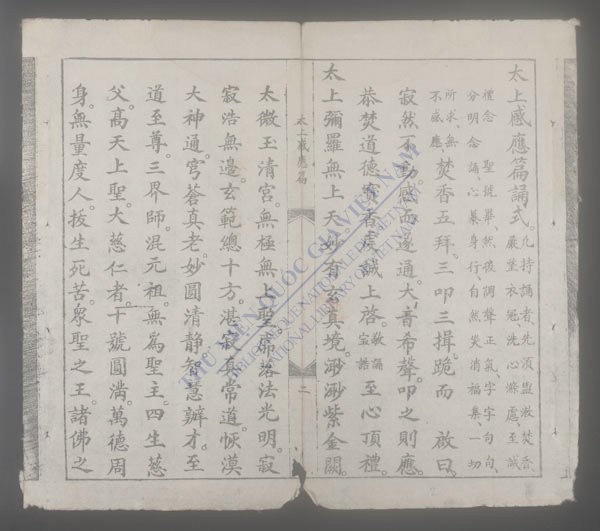 太上感應篇誦式。凡持誦者先須盥漱焚香、嚴整衣冠洗心滌慮、至誠
禮念 聖號畢、然後調聲正氣、字字句句、分明念誦、心慕身行、自然災消福集、一切
所求、無不感應、焚香五拜、三叩三揖、跪而 啟曰。
寂然不動感而遂通。大音希聲。叩之則應。
恭焚道德寶香虔誠上啓。敬誦寶誥 至心頂禮。
太上彌羅無上天妙有玄真境。渺渺紫金闕。
太微玉清宮。無極無上聖。廓落法光明。寂
寂浩無邊。玄範總十方。湛寂真常道。恢漠
大神通。穹蒼真老。妙圓清靜。智慧辯才。至
道至尊。三界師。混元祖。無為聖主。四生慈
父。高天上聖。大慈仁者。十號圓滿。萬德周
身。無量度人。拔生死苦。衆聖之王。諸佛之
太上感應篇
二
THƯ VIỆN QUỐC GIA VIỆT NAM
BIBLIOTHÈQUE NATIONALE DU VIETNAM
NATIONAL LIBRARY OF VIETNAM